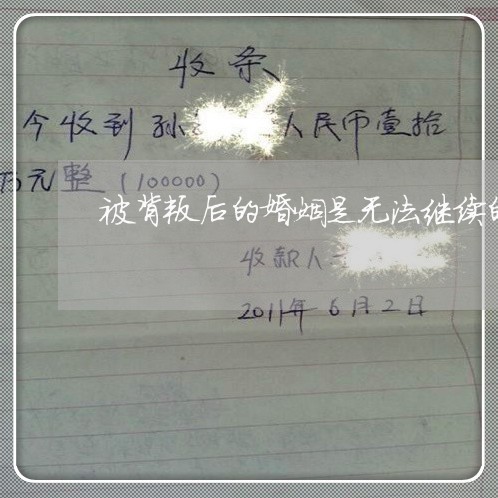 收条
今收到孙 人民币壹拾
万元整(100000)
被背叛后的婚姻是无法继续的
收款人
2011年6月2日